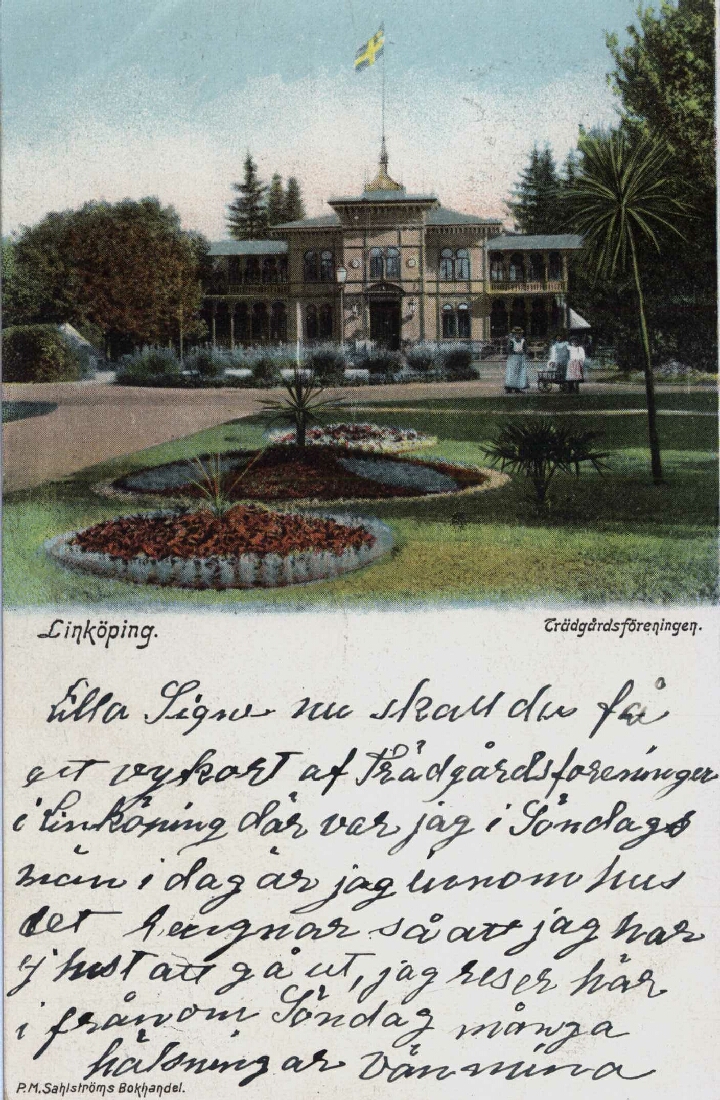 Linköping.
Trädgårdsföreningen.
Lilla Signe nu skall du få
ett vykort af Trädgårdsföreningen
i Linköping där var jag i Söndags
män i dag är jag innom hus
det rängnar så att jag har
ej lust att gå ut, jag reser här
i från om Söndag många
hälsningar vännina
P.M. Sahlströms Bokhandel.